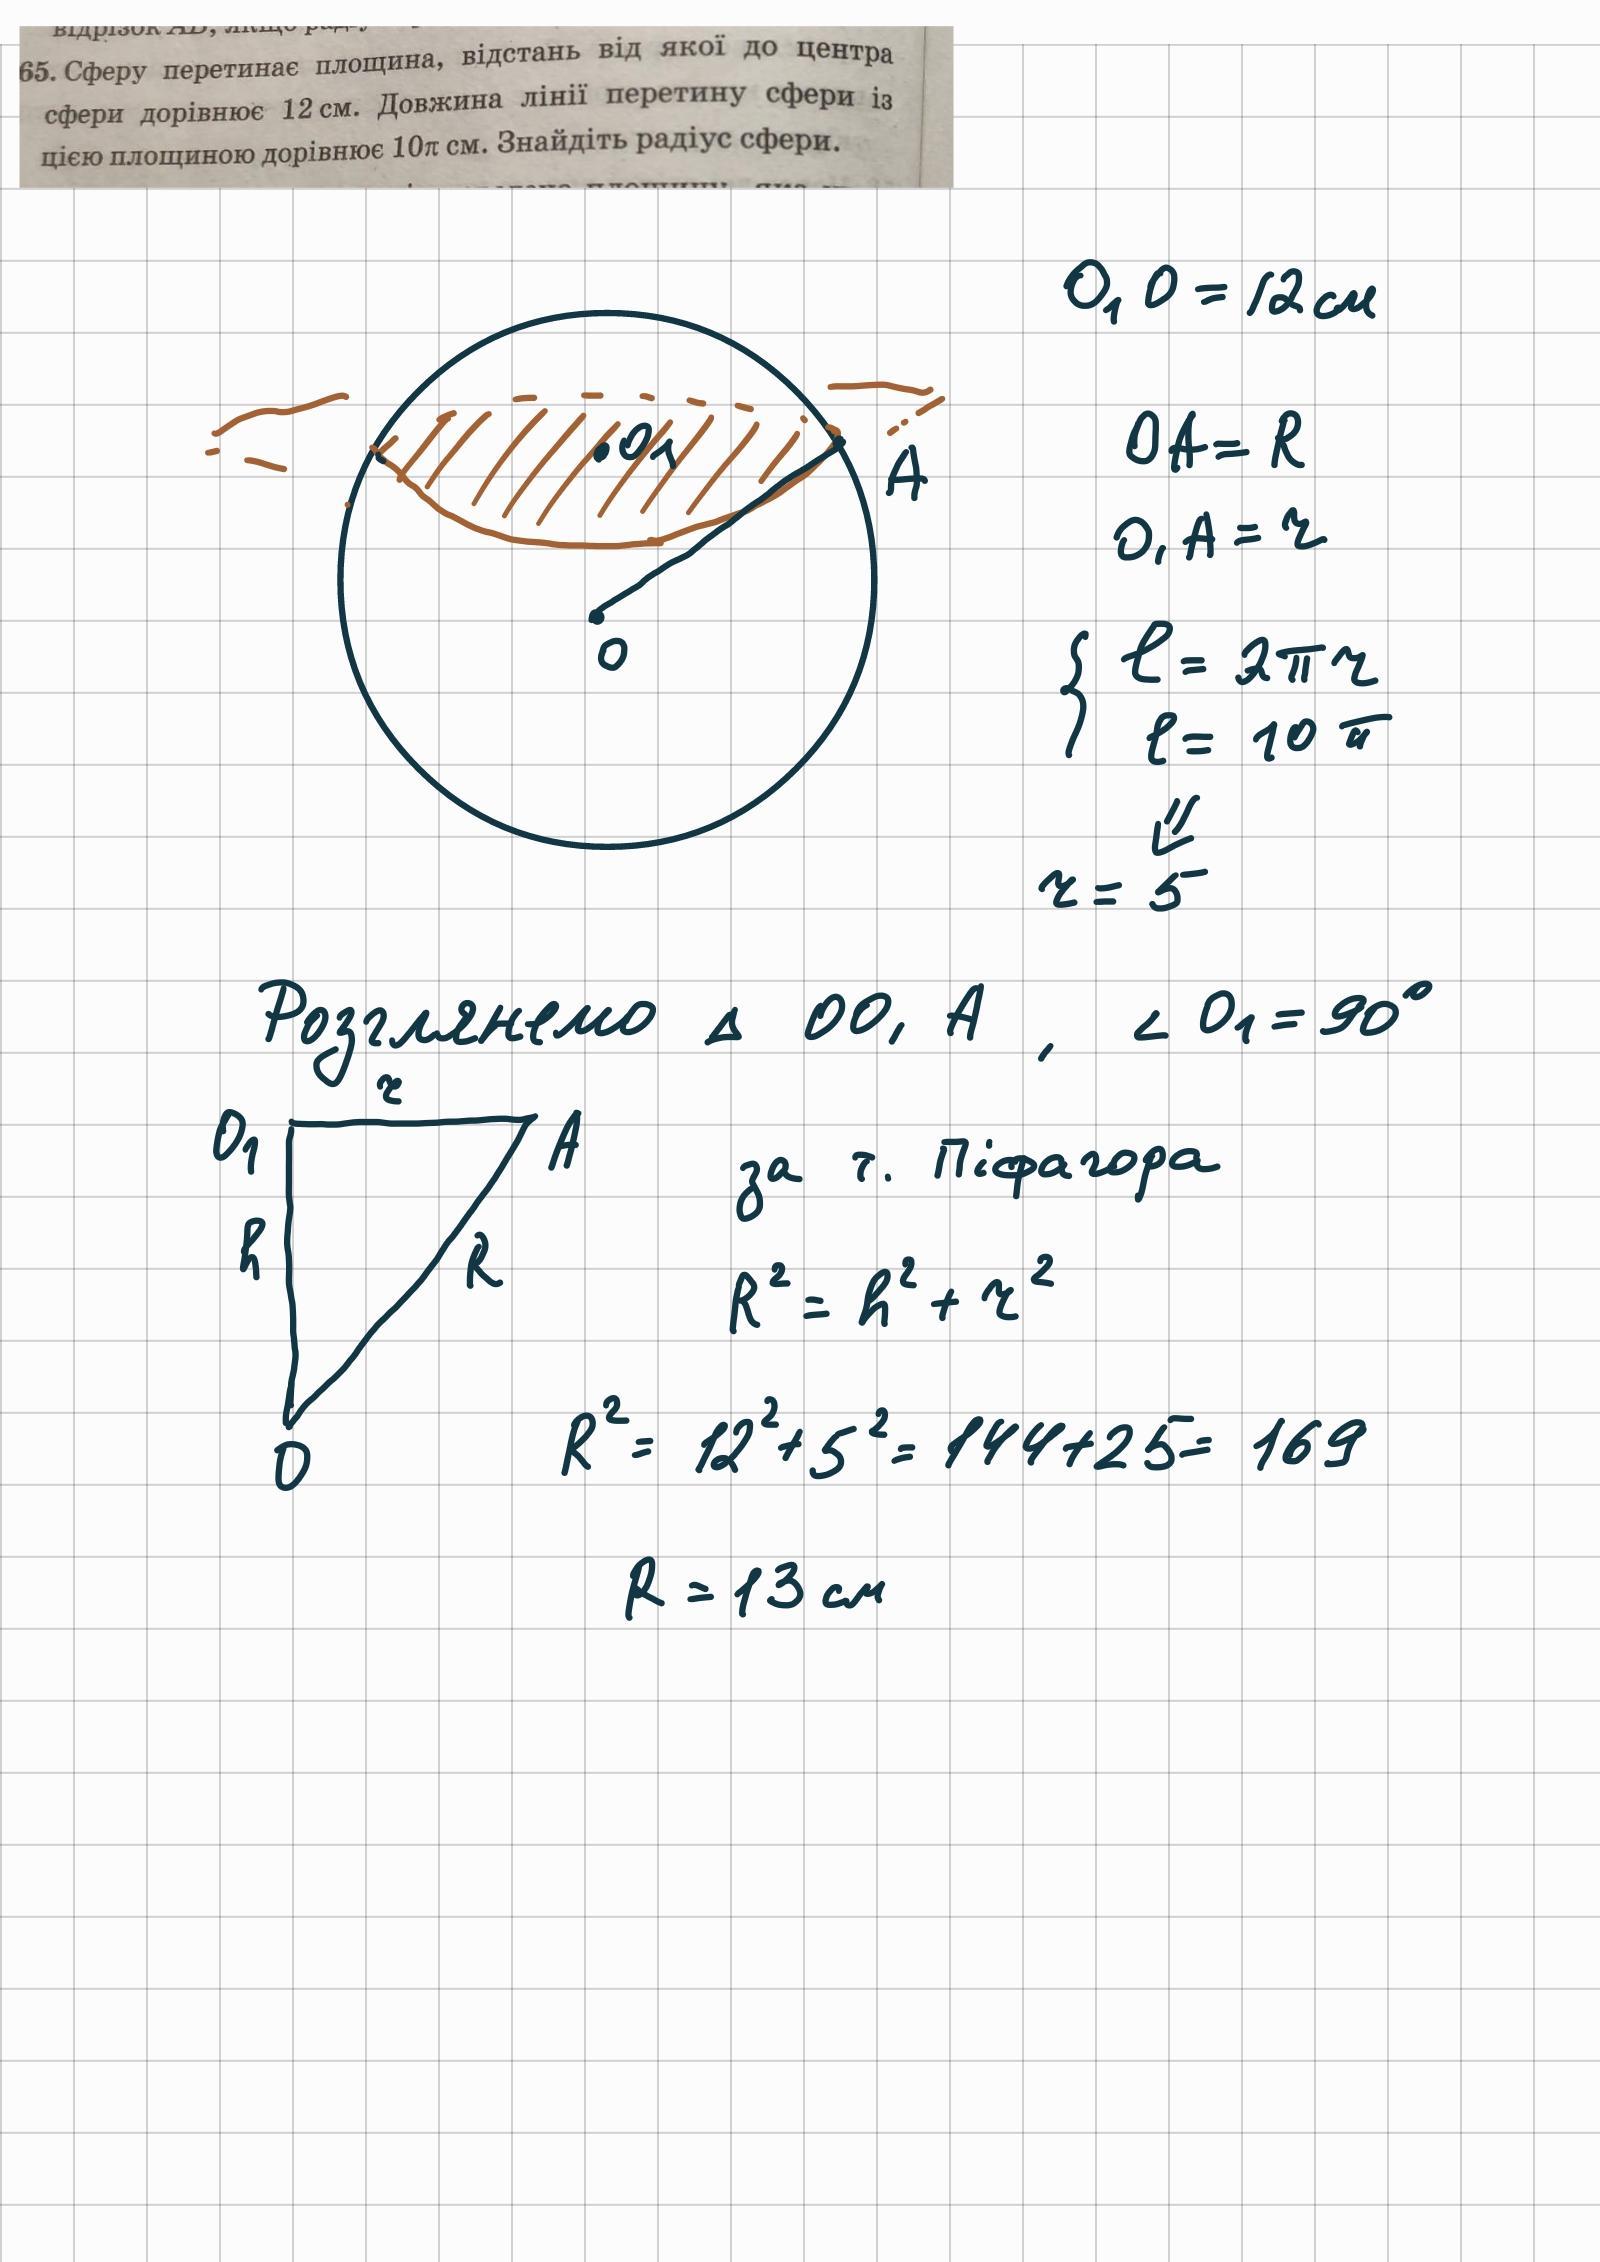 відрізок AB, якщо
65. Сферу перетинає площина, відстань від якої до центра
сфери дорівнює 12 см. Довжина лінії перетину сфери із
цією площиною дорівнює 10π см. Знайдіть радіус сфери.
площину, яка
O₁O = 12 см
O₁
A
O
OA = R
O₁A = r
{ l = 2πr
l = 10π
⇓
r = 5
Розглянемо Δ OO₁A, ∠O₁ = 90°
r
O₁
A
h
R
O
за т. Піфагора
R² = h² + r²
R² = 12² + 5² = 144 + 25 = 169
R = 13 см